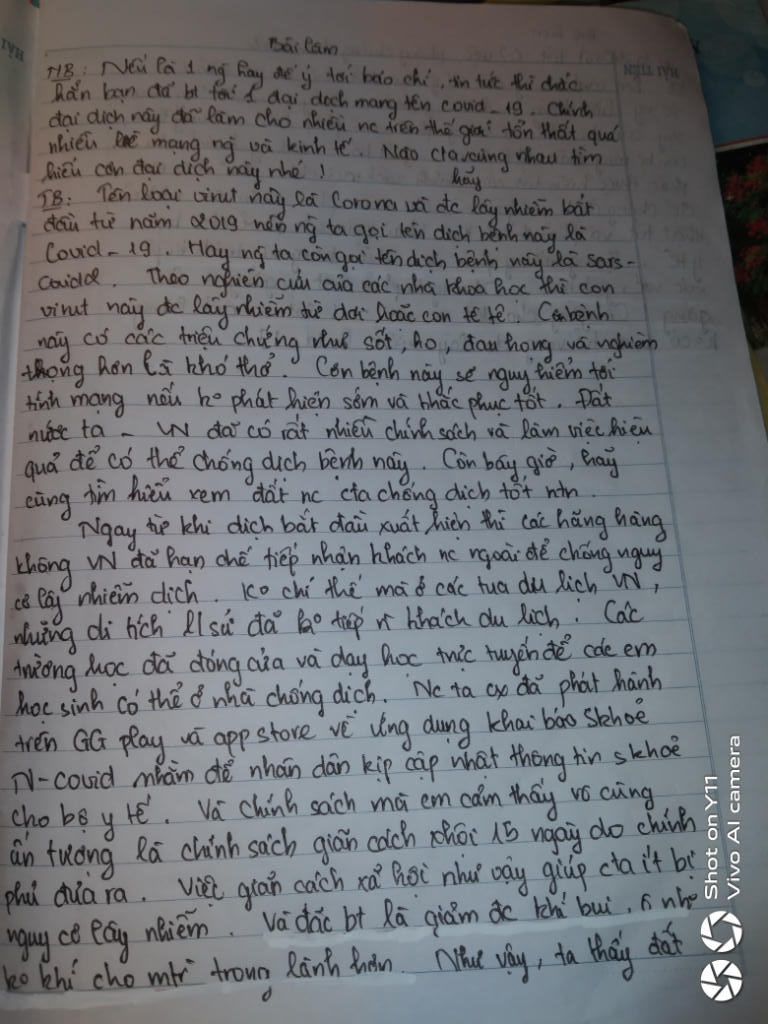 Bài làm
MB: Nếu là 1 ng hay để ý tới báo chí, tin tức thì chắc
hẳn bạn đã bt tới 1 đại dịch mang tên covid-19. Chính
đại dịch này đã làm cho nhiều nc trên thế giới tổn thất quá
nhiều về mạng ng và kinh tế. Nào cta cùng nhau tìm
hiểu cơn đại dịch này nhé hãy
TB: Tên loại virut này là Corona và đc lây nhiễm bắt
đầu từ năm 2019 nên ng ta gọi tên dịch bệnh này là
Covid-19. Hay ng ta còn gọi tên dịch bệnh này là sars-
covid2. Theo nghiên cứu của các nhà khoa học thì con
virut này đc lây nhiễm từ dơi hoặc con tê tê. Căn bệnh
này có các triệu chứng như sốt, ho, đau họng và nghiêm
trọng hơn là khó thở. Cơn bệnh này sẽ nguy hiểm tới
tính mạng nếu ko phát hiện sớm và khắc phục tốt. Đất
nước ta - VN đã có rất nhiều chính sách và làm việc hiệu
quả để có thể chống dịch bệnh này. Còn bây giờ, hãy
cùng tìm hiểu xem đất nc cta chống dịch tốt ntn.
Ngay từ khi dịch bắt đầu xuất hiện thì các hãng hàng
không VN đã hạn chế tiếp nhận khách nc ngoài để chống nguy
cơ lây nhiễm dịch. Ko chỉ thế mà ở các tua du lịch VN,
những di tích lsử đã ko tiếp khách du lịch. Các
trường học đã đóng cửa và dạy học trực tuyến để các em
học sinh có thể ở nhà chống dịch. Nc ta cx đã phát hành
trên GG play và app store về ứng dụng khai báo skhoẻ
N-covid nhằm để nhân dân kịp cập nhật thông tin skhoẻ
cho bộ y tế. Và chính sách mà em cảm thấy vô cùng
ấn tượng là chính sách giãn cách xhội 15 ngày do chính
phủ đưa ra. Việc giãn cách xã hội như vậy giúp cta ít bị
nguy cơ lây nhiễm. Và đặc bt là giảm đc khí bụi, ô nh
ko khí cho mtr trong lành hơn. Như vậy, ta thấy đất
HẢI TIẾN
Shot on Y11
Vivo AI camera